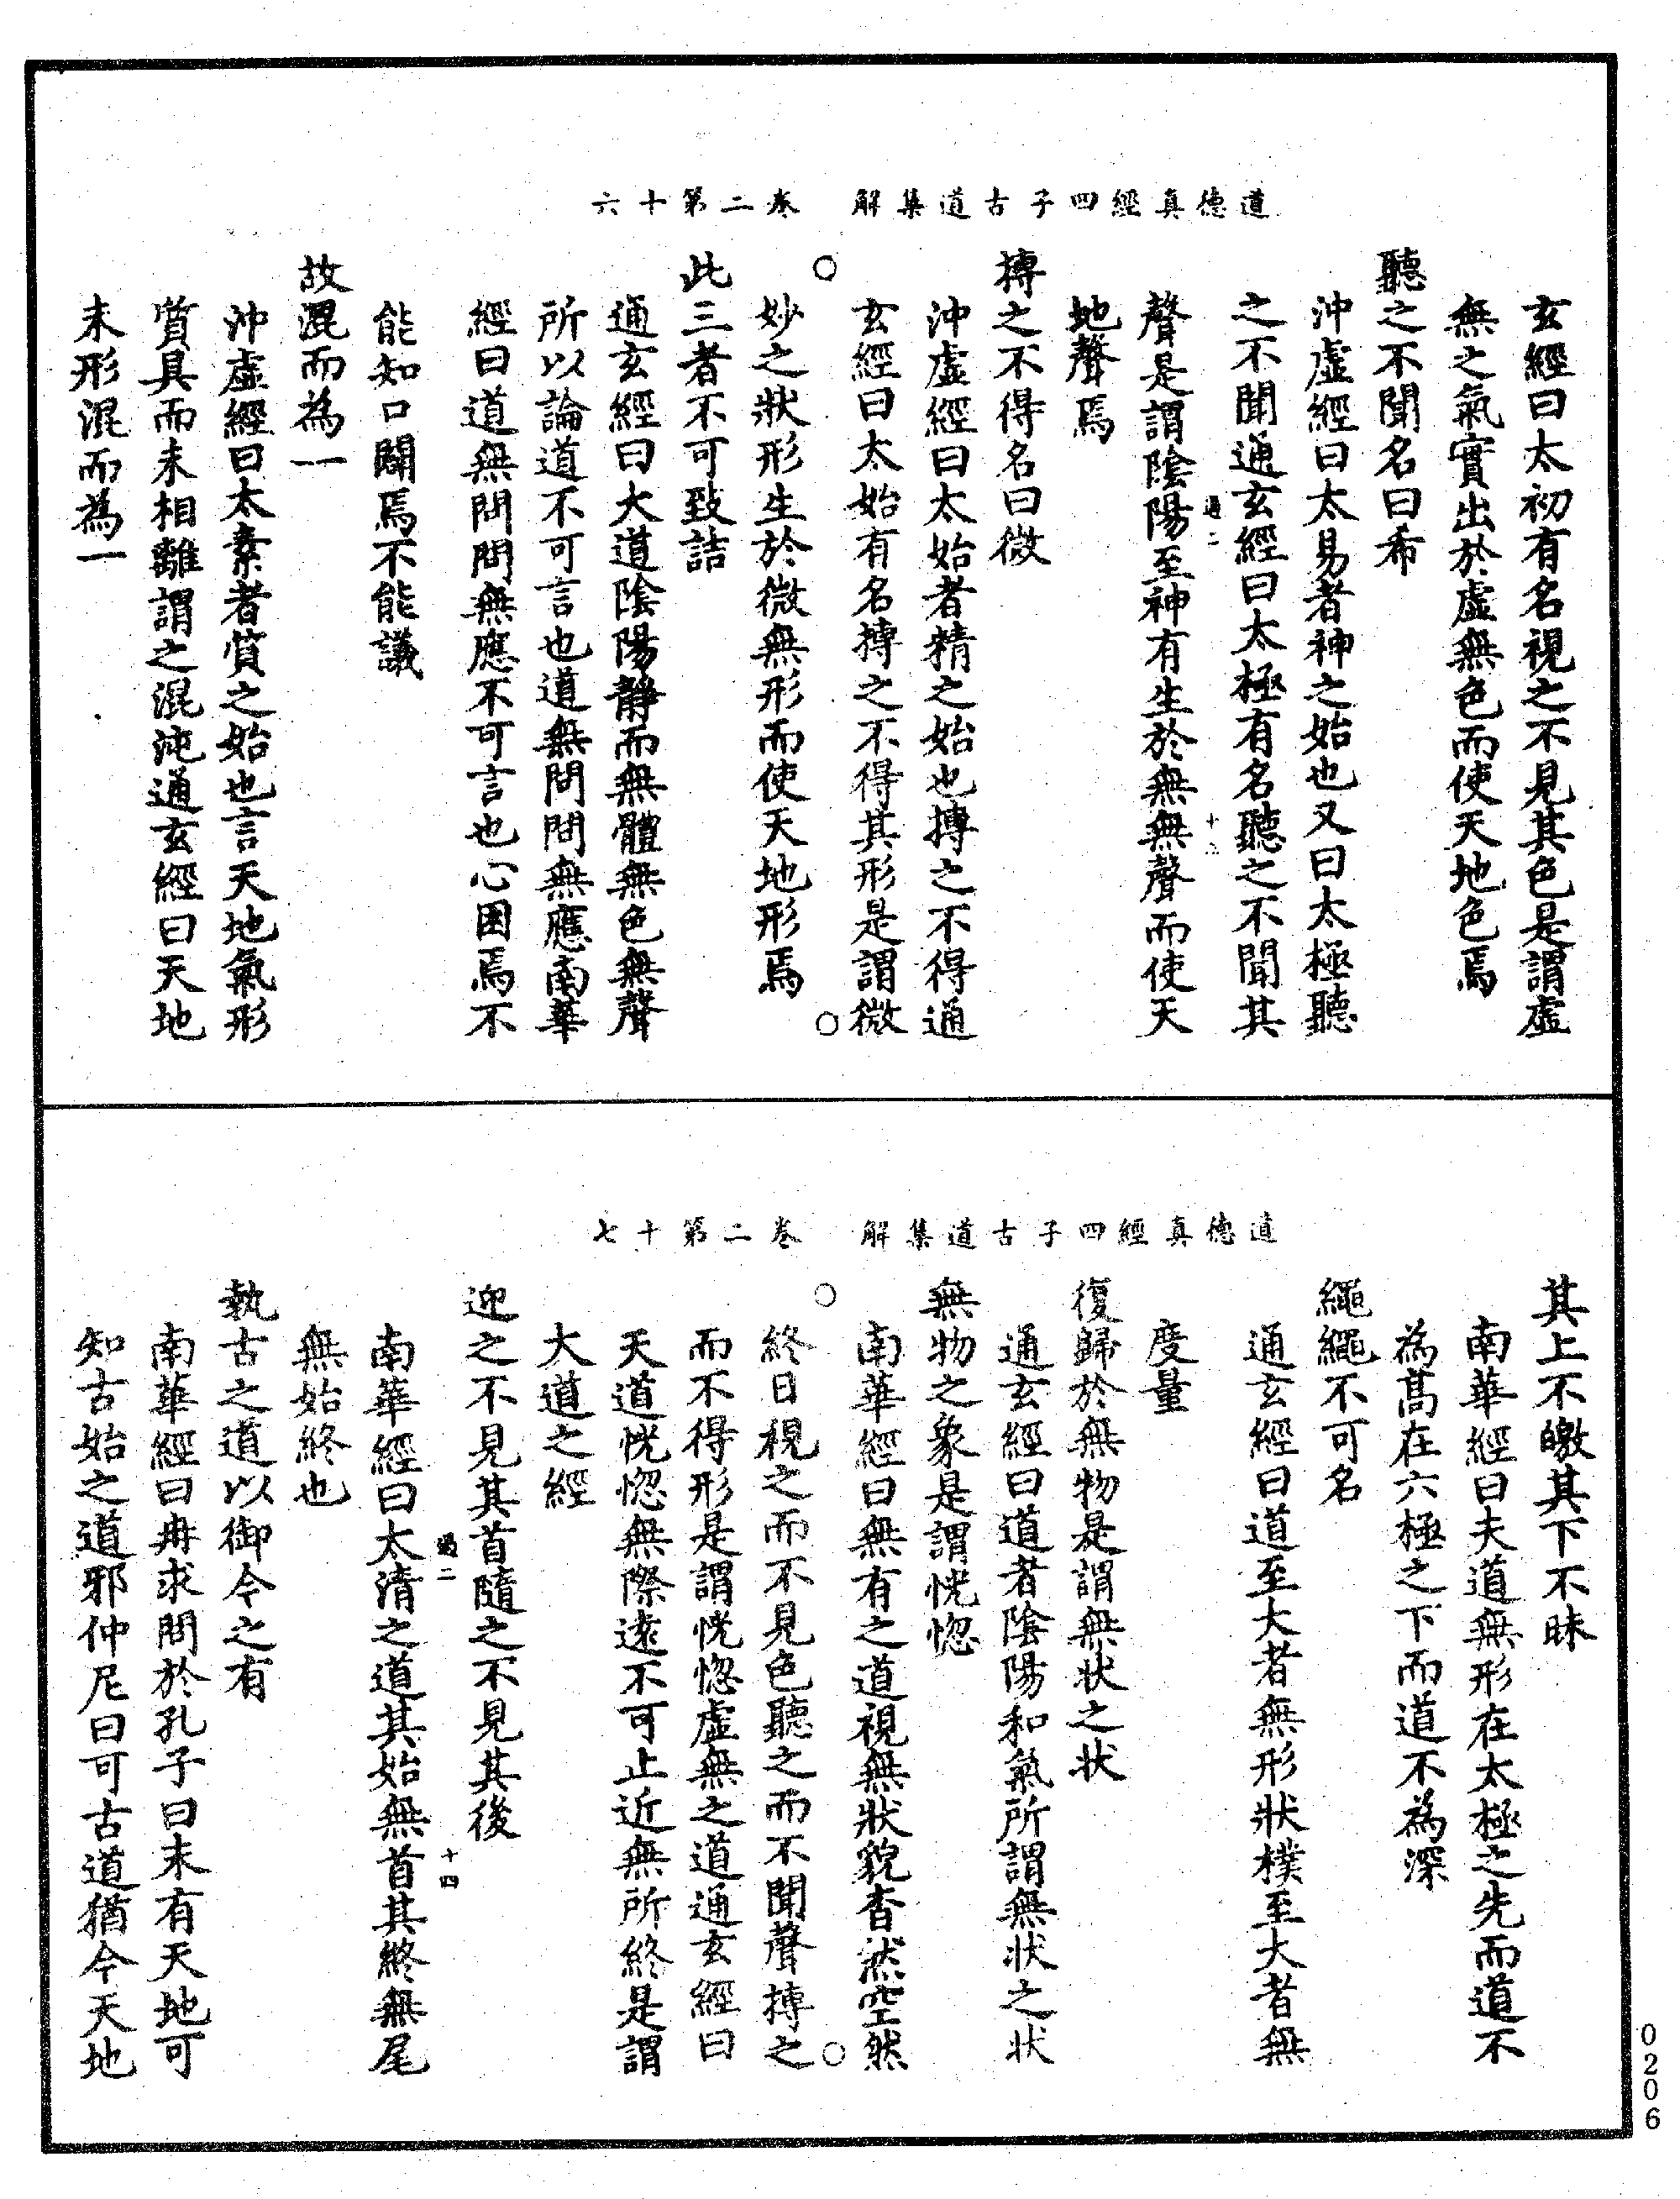 道德真經四子古道集解　卷二第十六
玄經曰太初有名視之不見其色是謂虛
無之氣實出於虛無色而使天地色焉
聽之不聞名曰希
沖虛經曰太易者神之始也又曰太極聽
之不聞通玄經曰太極有名聽之不聞其
聲是謂陰陽至神有生於無無聲而使天
地聲焉
搏之不得名曰微
沖虛經曰太始者精之始也搏之不得通
玄經曰太始有名搏之不得其形是謂微
妙之狀形生於微無形而使天地形焉
此三者不可致詰
通玄經曰大道陰陽靜而無體無色無聲
所以論道不可言也道無問問無應南華
經曰道無問問無應不可言也心困焉不
能知口闢焉不能議
故混而為一
沖虛經曰太素者質之始也言天地氣形
質具而未相離謂之混沌通玄經曰天地
未形混而為一
道德真經四子古道集解　卷二第十七
其上不皦其下不昧
南華經曰夫道無形在太極之先而道不
為高在六極之下而道不為深
繩繩不可名
通玄經曰道至大者無形狀樸至大者無
度量
復歸於無物是謂無狀之狀
通玄經曰道者陰陽和氣所謂無狀之狀
無物之象是謂恍惚
南華經曰無有之道視無狀貌杳然空然
終日視之而不見色聽之而不聞聲搏之
而不得形是謂恍惚虛無之道通玄經曰
天道恍惚無際遠不可止近無所終是謂
大道之經
迎之不見其首隨之不見其後
南華經曰太清之道其始無首其終無尾
無始終也
執古之道以御今之有
南華經曰冉求問於孔子曰未有天地可
知古始之道邪仲尼曰可古道猶今天地
二
十四
0206